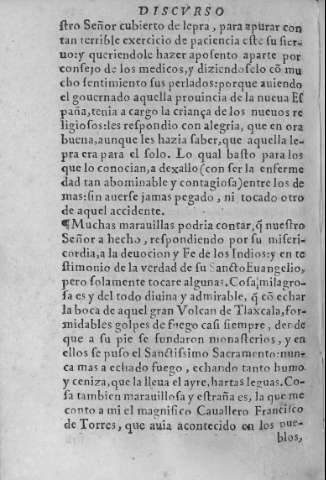 DISCVRSO
stro Señor cubierto de lepra, para apurar con
tan terrible exercicio de paciencia este su sier-
uo: y queriendole hazer aposento aparte por
consejo de los medicos, y diziendoselo cõ mu
cho sentimiento sus perlados: porque auiendo
el gouernado aquella prouincia de la nueua Es
paña, tenia a cargo la criança de los nueuos re
ligiosos: les respondio con alegria, que en ora
buena, aunque les hazia saber, que aquella le-
pra era para el solo. Lo qual basto para los
que lo conocian, a dexallo (con ser la enferme
dad tan abominable y contagiosa) entre los de
mas: sin auerse jamas pegado, ni tocado otro
de aquel accidente.
¶Muchas marauillas podria contar, q̃ nuestro
Señor a hecho, respondiendo por su miseri-
cordia, a la deuocion y Fe de los Indios: y en te
stimonio de la verdad de su Sancto Euangelio,
pero solamente tocare algunas. Cosa milagro-
sa es y del todo diuina y admirable, q̃ cõ echar
la boca de aquel gran Volcan de Tlaxcala, for-
midables golpes de fuego casi siempre, dende
que a su pie se fundaron monasterios, y en
ellos se puso el Sanctissimo Sacramento: nun-
ca mas a echado fuego, echando tanto humo
y ceniza, que la lleua el ayre, hartas leguas. Co-
sa tambien marauillosa y estraña es, la que me
conto a mi el magnifico Cauallero Francisco
de Torres, que auia acontecido en los pue-
blos,